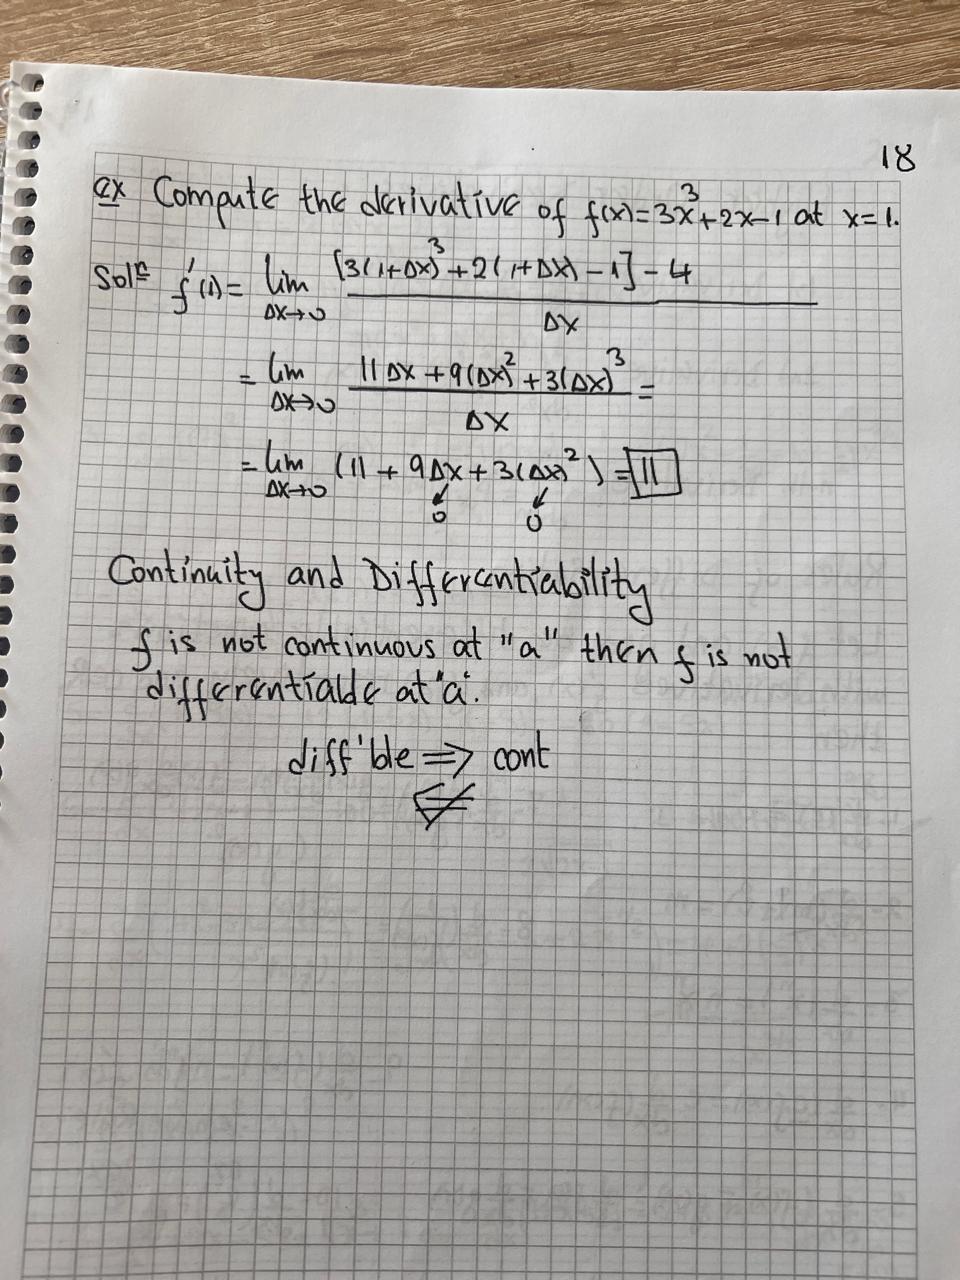 18
ex Compute the derivative of f(x)=3x³+2x-1 at x=1.
Solⁿ f'(1)= lim Δx→0 [3(1+Δx)³+2(1+Δx)-1]-4 / Δx
= lim Δx→0 11Δx+9(Δx)²+3(Δx)³ / Δx =
= lim Δx→0 (11+9Δx+3(Δx)²)=11
0 0
Continuity and Differentiability
f is not continuous at "a" then f is not
differentiable at "a".
diff'ble ⇒ cont
⇍